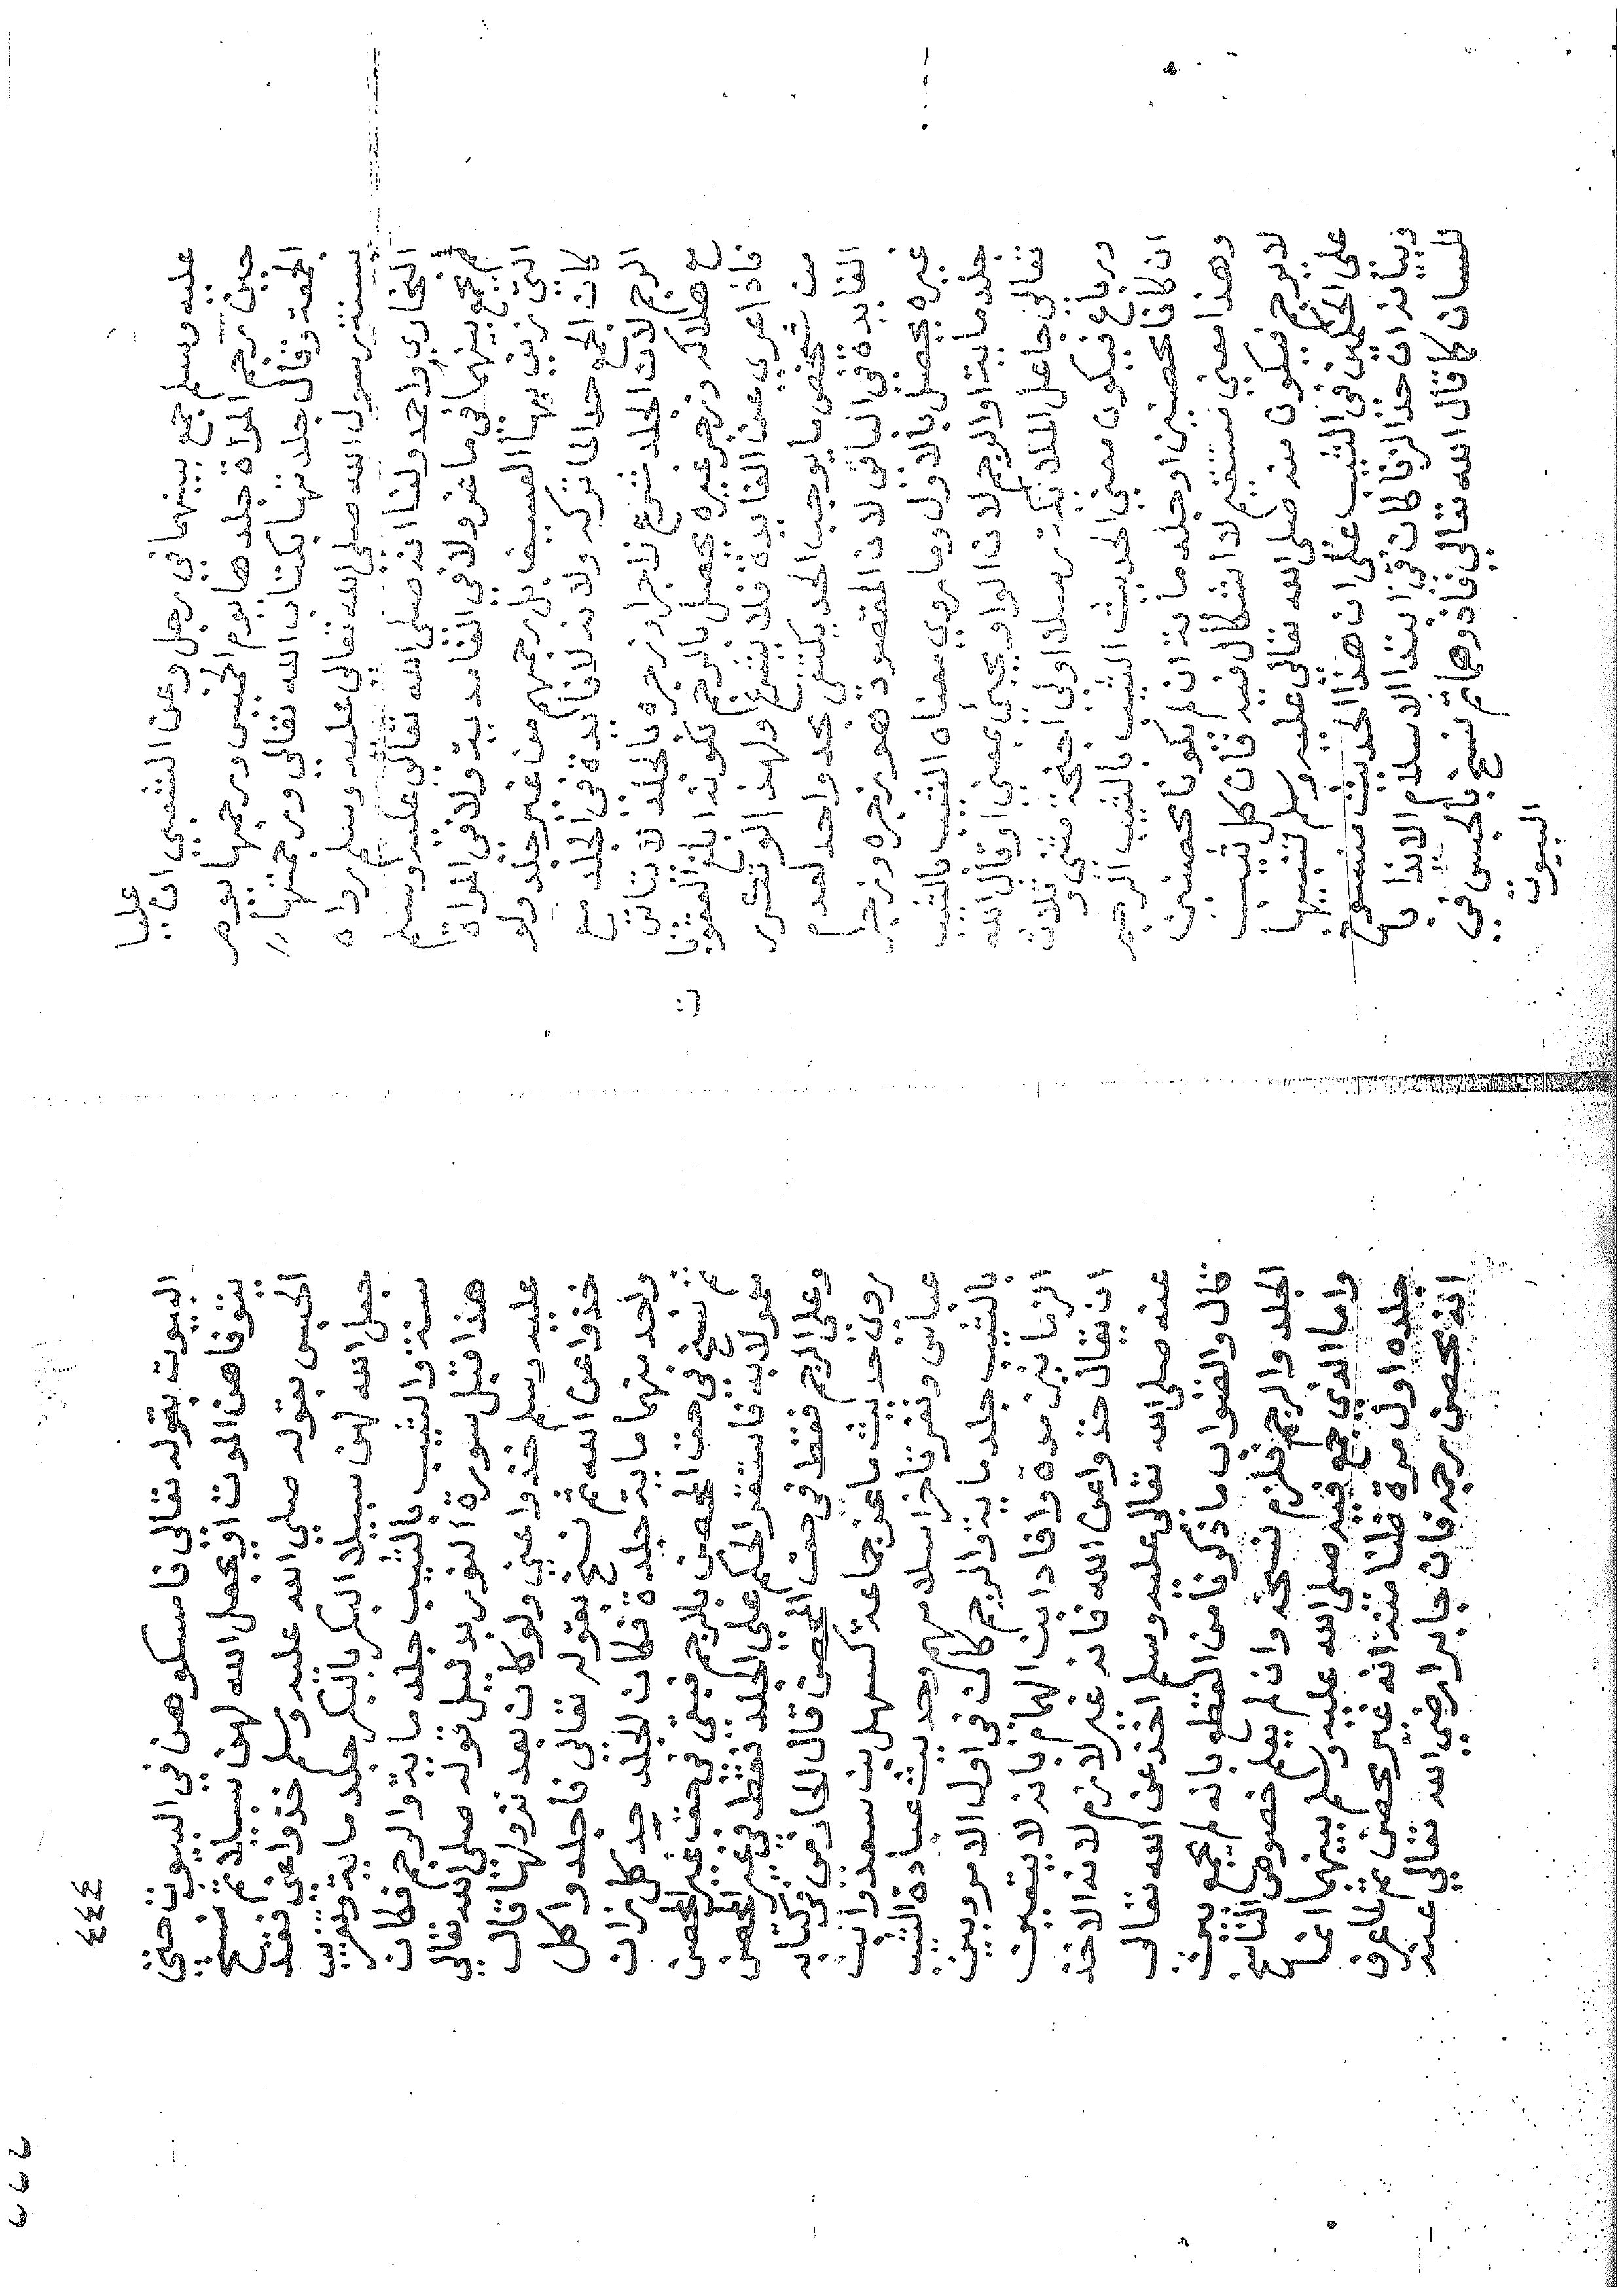 عليه وسلم جمع بينهما في رجل وعن الشعبي ان عليا
حين رجم المراة جلدها يوم الخميس ورجمها يوم
الجمعة وقال جلدتها بكتاب الله تعالى ورجمتها
بسنة رسول الله صلى الله تعالى عليه وسلم رواه
البخاري واحمد ولنا انه صلى الله تعالى عليه وسلم
لم يجمع بينهما في ماعز ولا في الغامدية ولا في المراة
التي زنى بها العسيف بل رجمهم من غير جلد ولو
كان الجمع حدا لما تركه ولانه لا فايدة في الجلد مع
الرجم لان الجلد شرع زاجرا وزجره بالجلد لا يتاتى
مع هلاكه وزجر غيره يحصل بالرجم لكونه ابلغ العقوبة
فاذا عري عن الفايدة فلا يشرع ولهذا لو تكرر
من شخص ما يوجب الحد يكتفى بحد واحد لعدم
الفايدة في الثاني لان المقصود هو زجره وزجر
غيره يحصل بالاول وما روي معناه الثيب بالثيب
جلد ماية او الرجم لان الواو يجيء بمعنى او قال الله
تعالى جاعل الملائكة رسلا اولي اجنحة مثنى وثلاث
ورباع فيكون معنى الحديث الثيب بالثيب الرجم
ان كانا محصنين او جلد ماية ان لم يكونا محصنين
وهذا معنى مستقيم لا اشكال فيه فان كل ثيب
لا يرجم فيكون منه صلى الله تعالى عليه وسلم تنبيها
على الحكمين في الثيب على ان هذا الحديث منسوخ
وبيانه ان حد الزنا كان في ابتداء الاسلام الايذاء
للسان كما قال الله تعالى فاذوهما ثم نسخ بالحبس في
البيوت
٤٤٤
البيوت بقوله تعالى فامسكوهن في البيوت حتى
يتوفاهن الموت او يجعل الله لهن سبيلا ثم نسخ
الحبس بقوله صلى الله عليه وسلم خذوا عني فقد
جعل الله لهن سبيلا البكر بالبكر جلد ماية وتغريب
سنة والثيب بالثيب جلد ماية والرجم فكان
هذا قبل سورة النور بدليل قوله صلى الله تعالى
عليه وسلم خذوا عني ولو كان بعد نزولها قال
خذوا عن الله ثم نسخ بقوله تعالى فاجلدوا كل
واحد منهما ماية جلدة فكان الجلد حد كل زان
ثم نسخ في حق المحصن بالرجم فبقي في حق غير المحصن
معمولا به فاستقر الحكم على الجلد فقط في غير المحصن
وعلى الرجم فقط في حق المحصن قال الحازمي في كتابه
روى حديث ماعز جماعة كسهل بن سعد وابن
عباس ونفر تاخر اسلامهم وحديث عبادة الثيب
بالثيب جلد ماية والرجم كان في اول الامر وبين
الزنا بين مدة وافاد ابن الهمام بانه لا يتعين
ان يقال خذوا عن الله فانه غير لازم لانه الاخذ
عنه صلى الله تعالى عليه وسلم اخذ عن الله تعالى
قال والصواب ما ذكرنا من القطع بانه لم يجمع بين
الجلد والرجم فلزم نسخه وان لم يعلم خصوص الناسخ
واما الذي جمع فيه صلى الله عليه وسلم بينهما انما
جلده اول مرة ظنا منه انه غير محصن ثم لما عرف
انه محصن رجمه فان جابرا رضي الله تعالى عنه